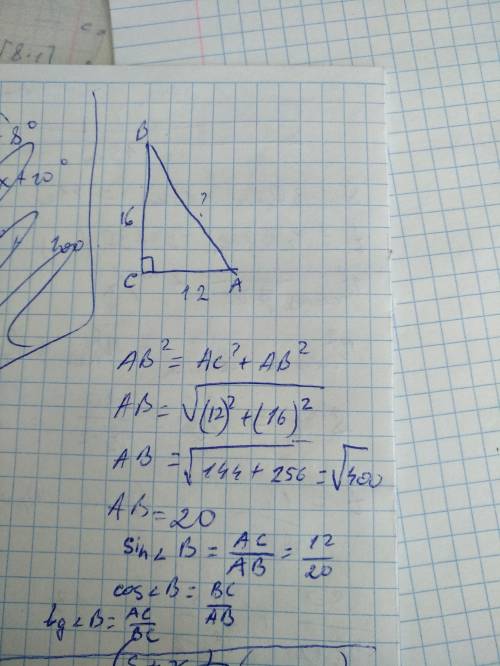 8°
x+20°
200
B
16
?
C
12
A
AB² = AC² + AB²
AB = √(12)² + (16)²
AB = √144 + 256 = √400
AB = 20
sin∠B = AC/AB = 12/20
cos∠B = BC/AB
tg∠B = AC/BC